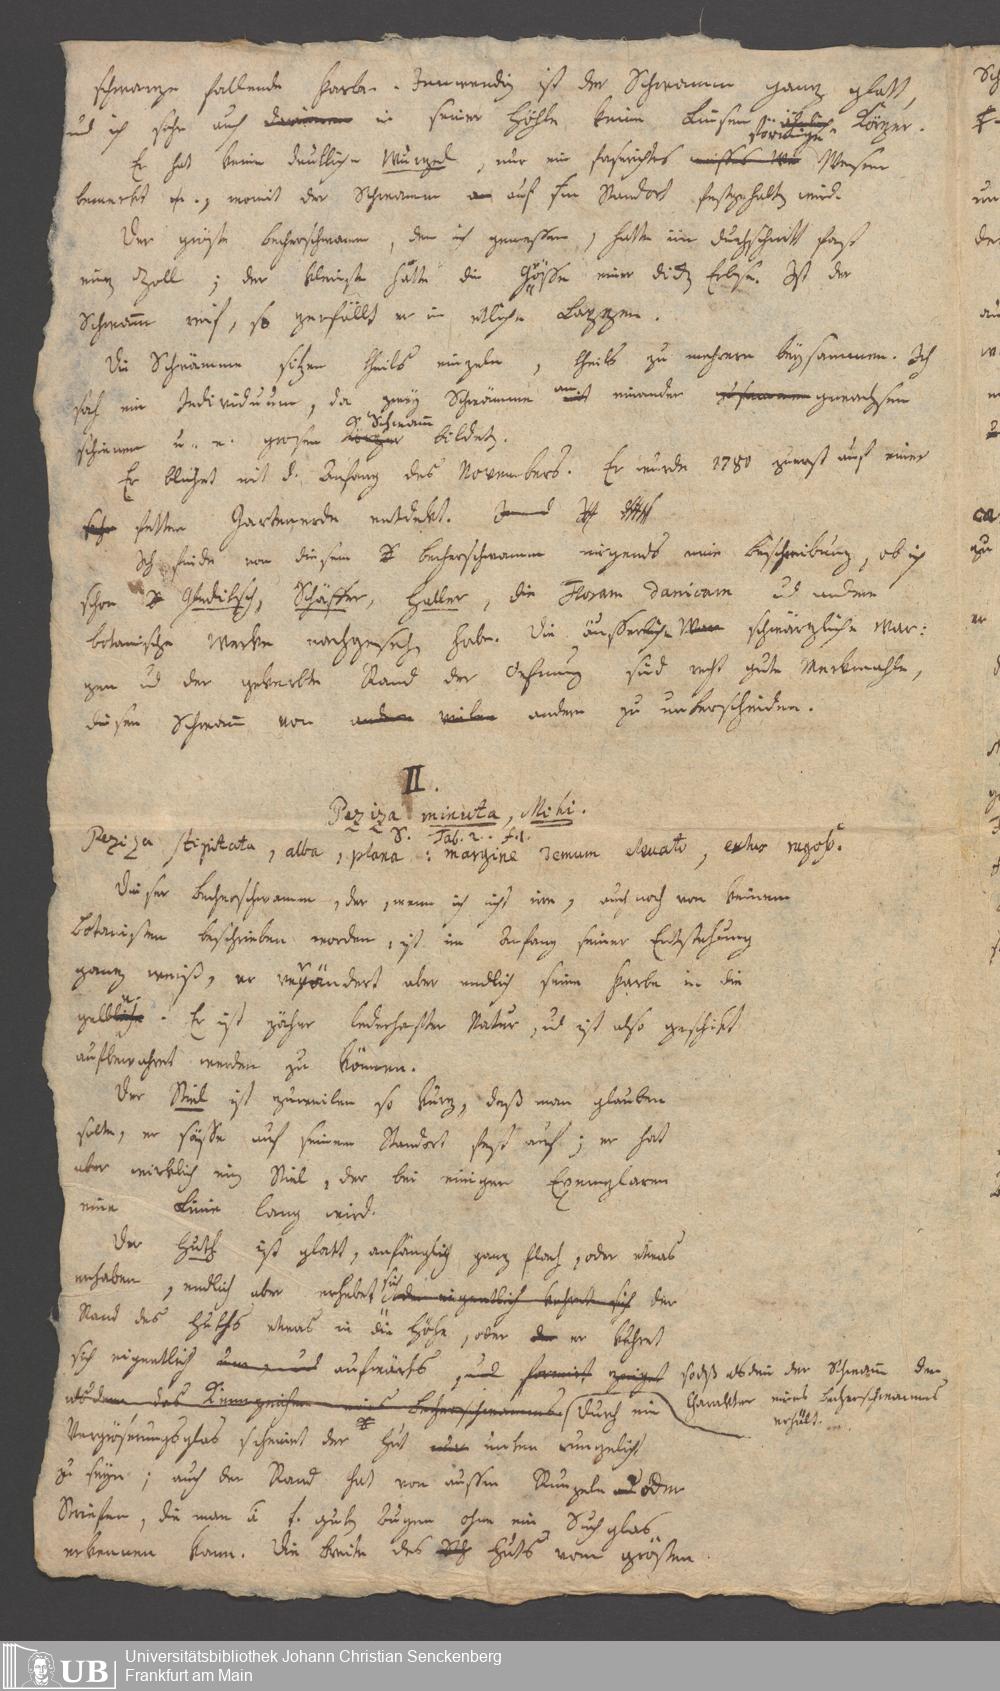 schwarze fallende Farbe. Inwendig ist der Schwamm ganz glatt,
und ich sahe auch darinnen in seiner Höhle keine Linsenförmige Körper.
Er hat keine deutliche Wurzel, nur ein faserichtes Wesen
bemerkt, womit der Schwamm auf sein Standort festgehalten wird.
Der gröste becherschwamm, den ich gemessen, hatte im durchschnitt fast
einen Zoll; der kleinste hatte die Grösse einer dicken Erbse. Ist der
Schwamm reif, so zerfällt er in etliche Lappen.
Die Schwämme sitzen theils einzeln, theils zu mehrern beysammen. Ich
sah ein Individuum, da zwey Schwämme an einander zusammen gewachsen
schienen u. e. grosen Schwamm bildeten.
Er blühet mit d. Anfang des Novembers. Er wurde 1780 zuerst auf einer
sehr fetten Gartenerde entdekt.
Ich finde von diesem becherschwamm nirgends eine beschreibung, ob ich
schon Gleditsch, Schäffer, Haller, die Floram danicam und andere
botanische Werke nachgesehen habe. Die äusserliche schwärzliche War:
zen und der gekerbte Rand der Oefnung sind recht gute Merkmahle,
diesen Schwamm von andern vielen andern zu unterscheiden.
II.
Peziza minuta, Mihi.
S. Tab. 2. f. 1.
Peziza stipitata, alba, plana: margine demum elevato, extus rugoso.
Dieser becherschwamm, der, wenn ich nicht irre, auch noch von keinem
Botanisten beschrieben worden, ist im Anfang seiner Entstehung
ganz weiß, er verändert aber endlich seine Farbe in die
gelbliche. Er ist zäher lederhafter Natur, und ist also geschikt
aufbewahret werden zu können.
Der Stiel ist zuweilen so kurz, daß man glauben
solte, er säße auf seinem Standort fest auf; er hat
aber wirklich einen Stiel, der bei einigen Exemplaren
eine Linie lang wird.
Der Huth ist glatt, anfänglich ganz flach, oder etwas
erhaben, endlich aber erhebet sich oder eigentlich kehret sich der
Rand des Huths etwas in die Höhe, oder er kehret
sich eigentlich um, und aufwärts, und formirt zeiget sodaß alsdenn der Schwamm den
alsdenn das Kennzeichen eines becherschwammes. Durch ein Charakter eines becherschwammes
erhält.
Vergröserungsglas scheinet der Hut unten runzelicht
zu seyn; auch der Rand hat von aussen Runzeln oder
Streifen, die man guten Augen ohne ein Suchglas
erkennen kann. Die breite des Huts vom grösten
Universitätsbibliothek Johann Christian Senckenberg
Frankfurt am Main
UB